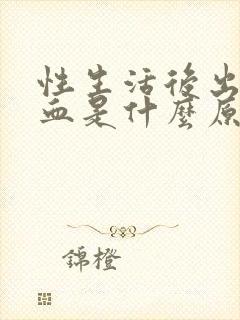 性生活後出
血是什麼原
錦橙